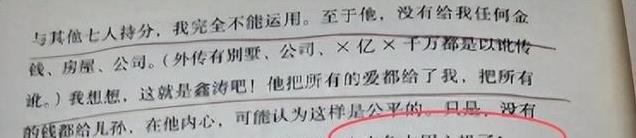 与其他七人持分，我完全不能运用。至于他，没有给我任何金
钱、房屋、公司。（外传有别墅、公司、×亿×千万都是以讹传
讹。）我想想，这就是鑫涛吧！他把所有的爱都给了我，把所有
的钱都给儿孙，在他内心，可能认为这样是公平的。只是，没有